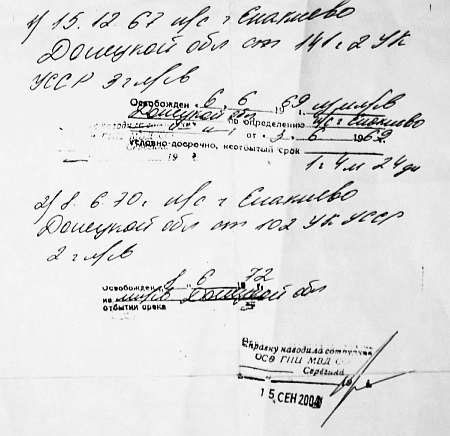 1) 15.12 67 н/с г Енакиево
Донецкой обл ст 141 ч 2 УК
УССР 3 г л/св
Освобожден 6. 6 19 69 из м л/св
Донецкой обл по определению н/с г Енакиево
от 6 19 69
условно-досрочно, неотбытый срок
19 1 г 4 м 24 дн
2) 8. 6 70 г н/с г Енакиево
Донецкой обл ст 102 УК УССР
2 г л/св
Освобожден 6 72
из Донецкой обл
отбытии срока
Справку наводила сотрудник
ОСФ ГИЦ МВД
Серегина
15 СЕН 2004